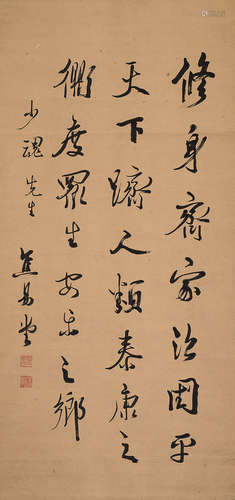 修身齊家治國平
天下躋人類泰康之
衢度眾生安樂之鄉
少魂先生
焦易堂